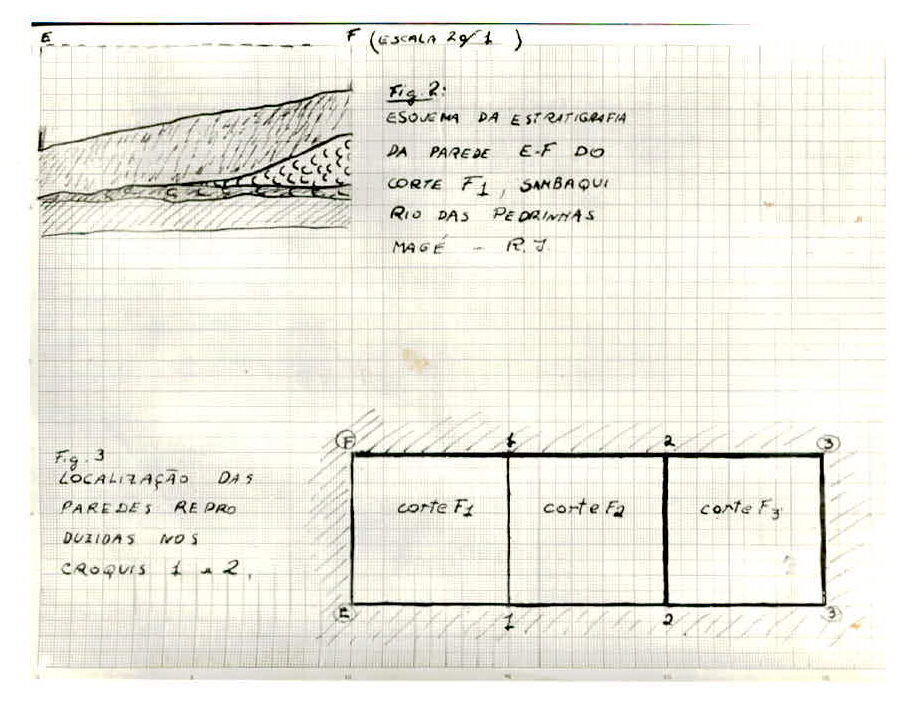 E F (ESCALA 20/1 )
Fig. 2:
ESQUEMA DA ESTRATIGRAFIA
DA PAREDE E-F DO
CORTE F1, SAMBAQUI
RIO DAS PEDRINHAS
MAGÉ - R.J.
Fig. 3
LOCALIZAÇÃO DAS
PAREDES REPRO
DUZIDAS NOS
CROQUIS 1 e 2.
F 1 2 3
corte F1 corte F2 corte F3
E 1 2 3